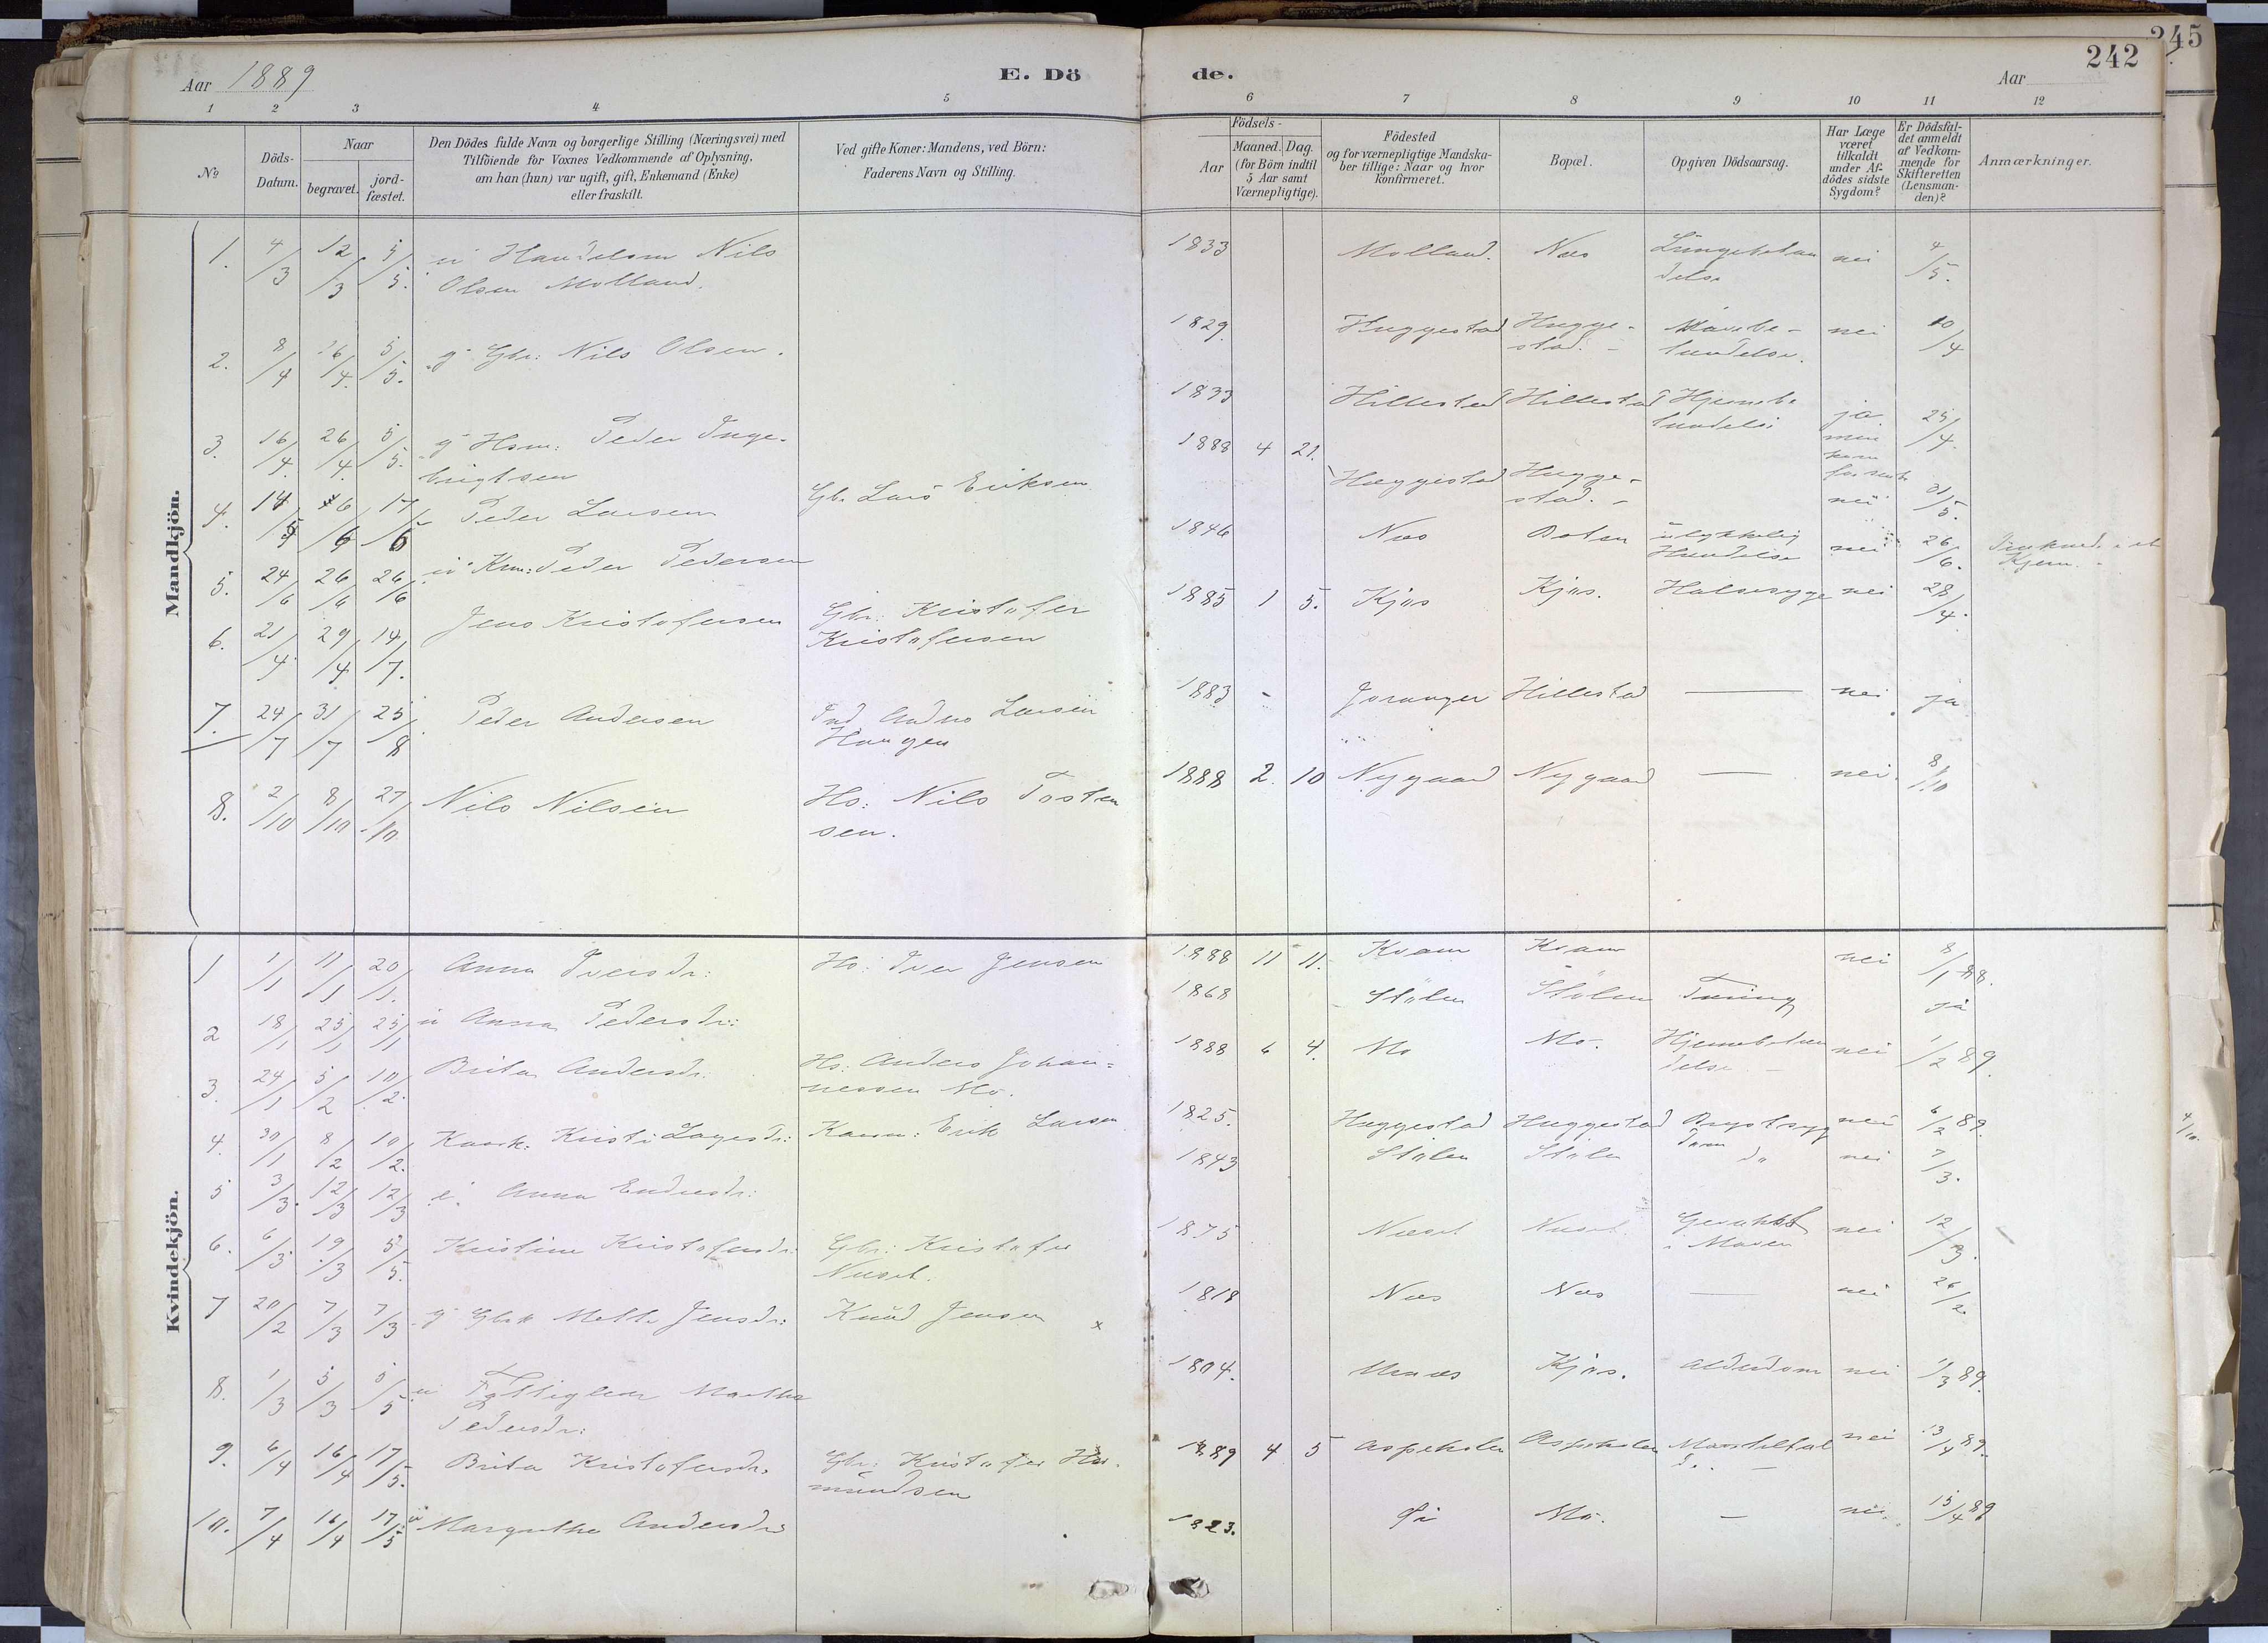 245
242
Aar 1889
E. Dö
de.
Aar
1 2 3 4 5 6 7 8 9 10 11 12
No
Döds-Datum.
Naar
begravet.
jord-fæstet.
Den Dödes fulde Navn og borgerlige Stilling (Næringsvei) med
Tilföiende for Voxnes Vedkommende af Oplysning,
om han (hun) var ugift, gift, Enkemand (Enke)
eller fraskilt.
Ved gifte Koner: Mandens, ved Börn:
Faderens Navn og Stilling.
Födsels-
Aar
Maaned. Dag.
(for Börn indtil
5 Aar samt
Værnepligtige).
Födested
og for værnepligtige Mandska-
ber tillige: Naar og hvor
konfirmeret.
Bopæl.
Opgiven Dödsaarsag.
Har Læge
været
tilkaldt
under Af-
dödes sidste
Sygdom?
Er Dödsfal-
det anmeldt
af Vedkom-
mende for
Skifteretten
(Lensman-
den)?
Anmærkninger.
Mandkjön.
1. 4/3 12/3 5/5. Nils 1833 Molland. Næs nei 4/5.
Olsen Molland.
2. 8/4 16/4. 5/5. g Gbr: Nils Olsen. 1829. Huggestad Hugge-stad. nei 10/4
3. 16/4. 26/4. 5/5. g Hsm: Peder Inge-brigtsen 1833 Hillestad Hillestad ja 25/4.
4. 14/5 6/6 17/6 Peder Larsen Gbr Lars Eriksen 1888 4 21. Huggestad Hugge-stad. nei 31/5.
5. 24/6 26/6 26/6 Peder Pedersen 1846 Næs ulykkelig Hændelse nei 26/6. Druknede i et Kjern.
6. 21/4 29/4 14/7. Jens Kristofersen Gbr: Kristofer Kristofersen 1885 1 5. Kjøs Kjøs. Halssyge nei 28/4.
7. 24/7 31/7 25/8 Peder Andersen Larsen Haugen 1883 - Joranger Hillestad — nei ja
8. 2/10 8/10 27/10. Nils Nilsen Hs: Nils Tosten sen. 1888 2. 10 Nygaard Nygaard — nei. 8/10
Kvindekjön.
1 1/1 11/1 20/1. Anna Iversdr: Hs: Iver Jensen 1888 11 11. Kvam Kvam nei 8/1 88.
2 18/1 25/1 25/1 u Anna Pedersdr: 1868 Stölen Stölen Tæring ja
3. 24/1 5/2 10/2. Brita Andersdr. Hs: Anders Johan=nessen Mo. 1888 6 4. Mo Mo. nei 1/2 89.
4. 30/1 8/2 10/2. Kristi Kaarm: Erik Larsen 1825. Huggestad Huggestad Brystsyg dom nei 6/2 89.
5 3/3. 12/3 12/3 Anna Endresdr: 1843 Stölen Stölen do nei 7/3.
6. 6/3 19/3 5/5. Kristine Kristofersdr: Gbr: Kristofer 1875 i Maven nei 12/3.
7 20/2 7/3 7/3 g Mette Jensdr: Knud Jensen x 1818 Næs Næs — nei 26/2.
8. 1/3 5/3 5/5 Fattiglem Martha Pedersdr: 1804. Kjøs. Alderdom nei 1/3 89.
9. 6/4 16/4 17/5. Brita Kristofersdr. Gbr: Kristofer 1889 4 5 Aspeholen Aspeholen nei 13/4 89.
10. 7/4 16/4 17/5 Margrethe Andersdr 1823. Mo. — nei. 15/4 89
4/10.